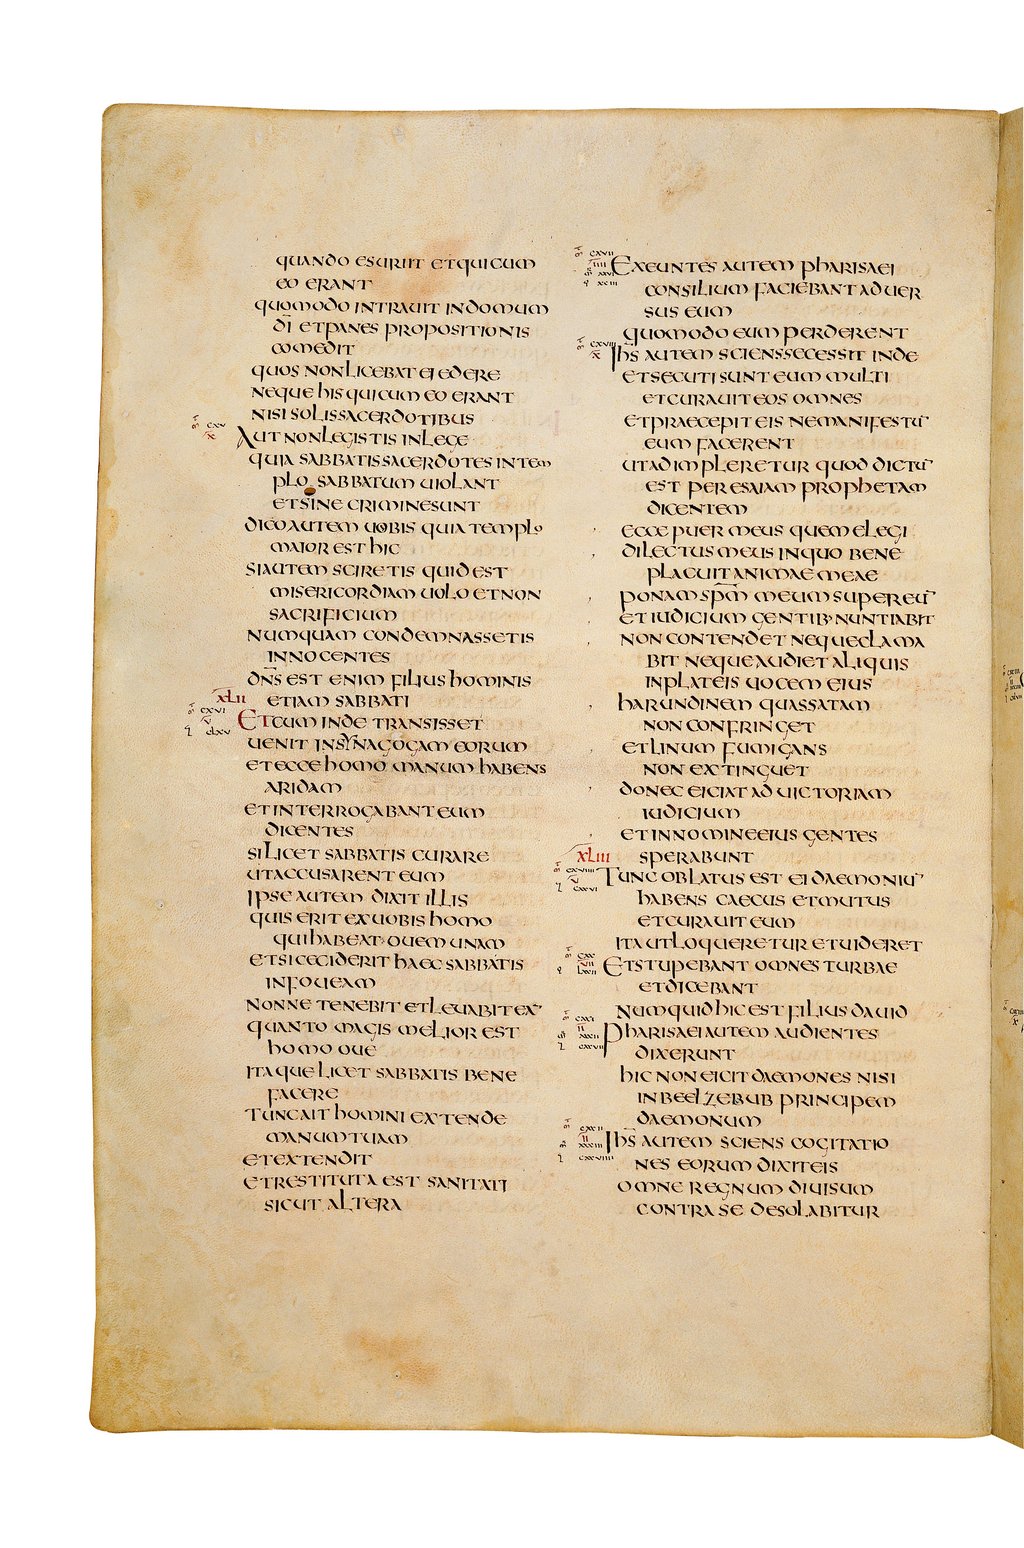 quando esuriit et qui cum
eo erant
quomodo intravit in domum
dī et panes propositionis
comedit
quos non licebat ei edere
neque his qui cum eo erant
nisi solis sacerdotibus
cxv
x
Aut non legistis in lege
quia sabbatis sacerdotes in tem
plo sabbatum violant
et sine crimine sunt
dico autem vobis quia templo
maior est hic
si autem sciretis quid est
misericordiam volo et non
sacrificium
numquam condemnassetis
innocentes
dn̄s est enim filius hominis
xlii etiam sabbati
cxvi
clxv
Et cum inde transisset
venit in synagogam eorum
et ecce homo manum habens
aridam
et interrogabant eum
dicentes
si licet sabbatis curare
ut accusarent eum
ipse autem dixit illis
quis erit ex vobis homo
qui habeat ovem unam
et si ceciderit haec sabbatis
in foveam
nonne tenebit et levabit eā
quanto magis melior est
homo ove
itaque licet sabbatis bene
facere
tunc ait homini extende
manum tuam
et extendit
et restituta est sanitati
sicut altera
cxvii
Exeuntes autem pharisaei
consilium faciebant adver
sus eum
quomodo eum perderent
cxviii
x
Ihs̄ autem sciens secessit inde
et secuti sunt eum multi
et curavit eos omnes
et praecepit eis ne manifestū
eum facerent
ut adimpleretur quod dictū
est per esaiam prophetam
dicentem
ecce puer meus quem elegi
dilectus meus in quo bene
placuit animae meae
ponam spm̄ meum super eū
et iudicium gentib· nuntiabit
non contendet neque clama
bit neque audiet aliquis
in plateis vocem eius
harundinem quassatam
non confringet
et linum fumigans
non extinguet
donec eiciat ad victoriam
iudicium
et in nomine eius gentes
xliii sperabunt
cxviiii
cxxvi
Tunc oblatus est ei daemoniū
habens caecus et mutus
et curavit eum
ita ut loqueretur et videret
cxx
Et stupebant omnes turbae
et dicebant
numquid hic est filius david
cxxi
cxxvii
Pharisaei autem audientes
dixerunt
hic non eicit daemones nisi
in beelzebub principem
daemonum
cxxii
cxxviiii
Ihs̄ autem sciens cogitatio
nes eorum dixit eis
omne regnum divisum
contra se desolabitur